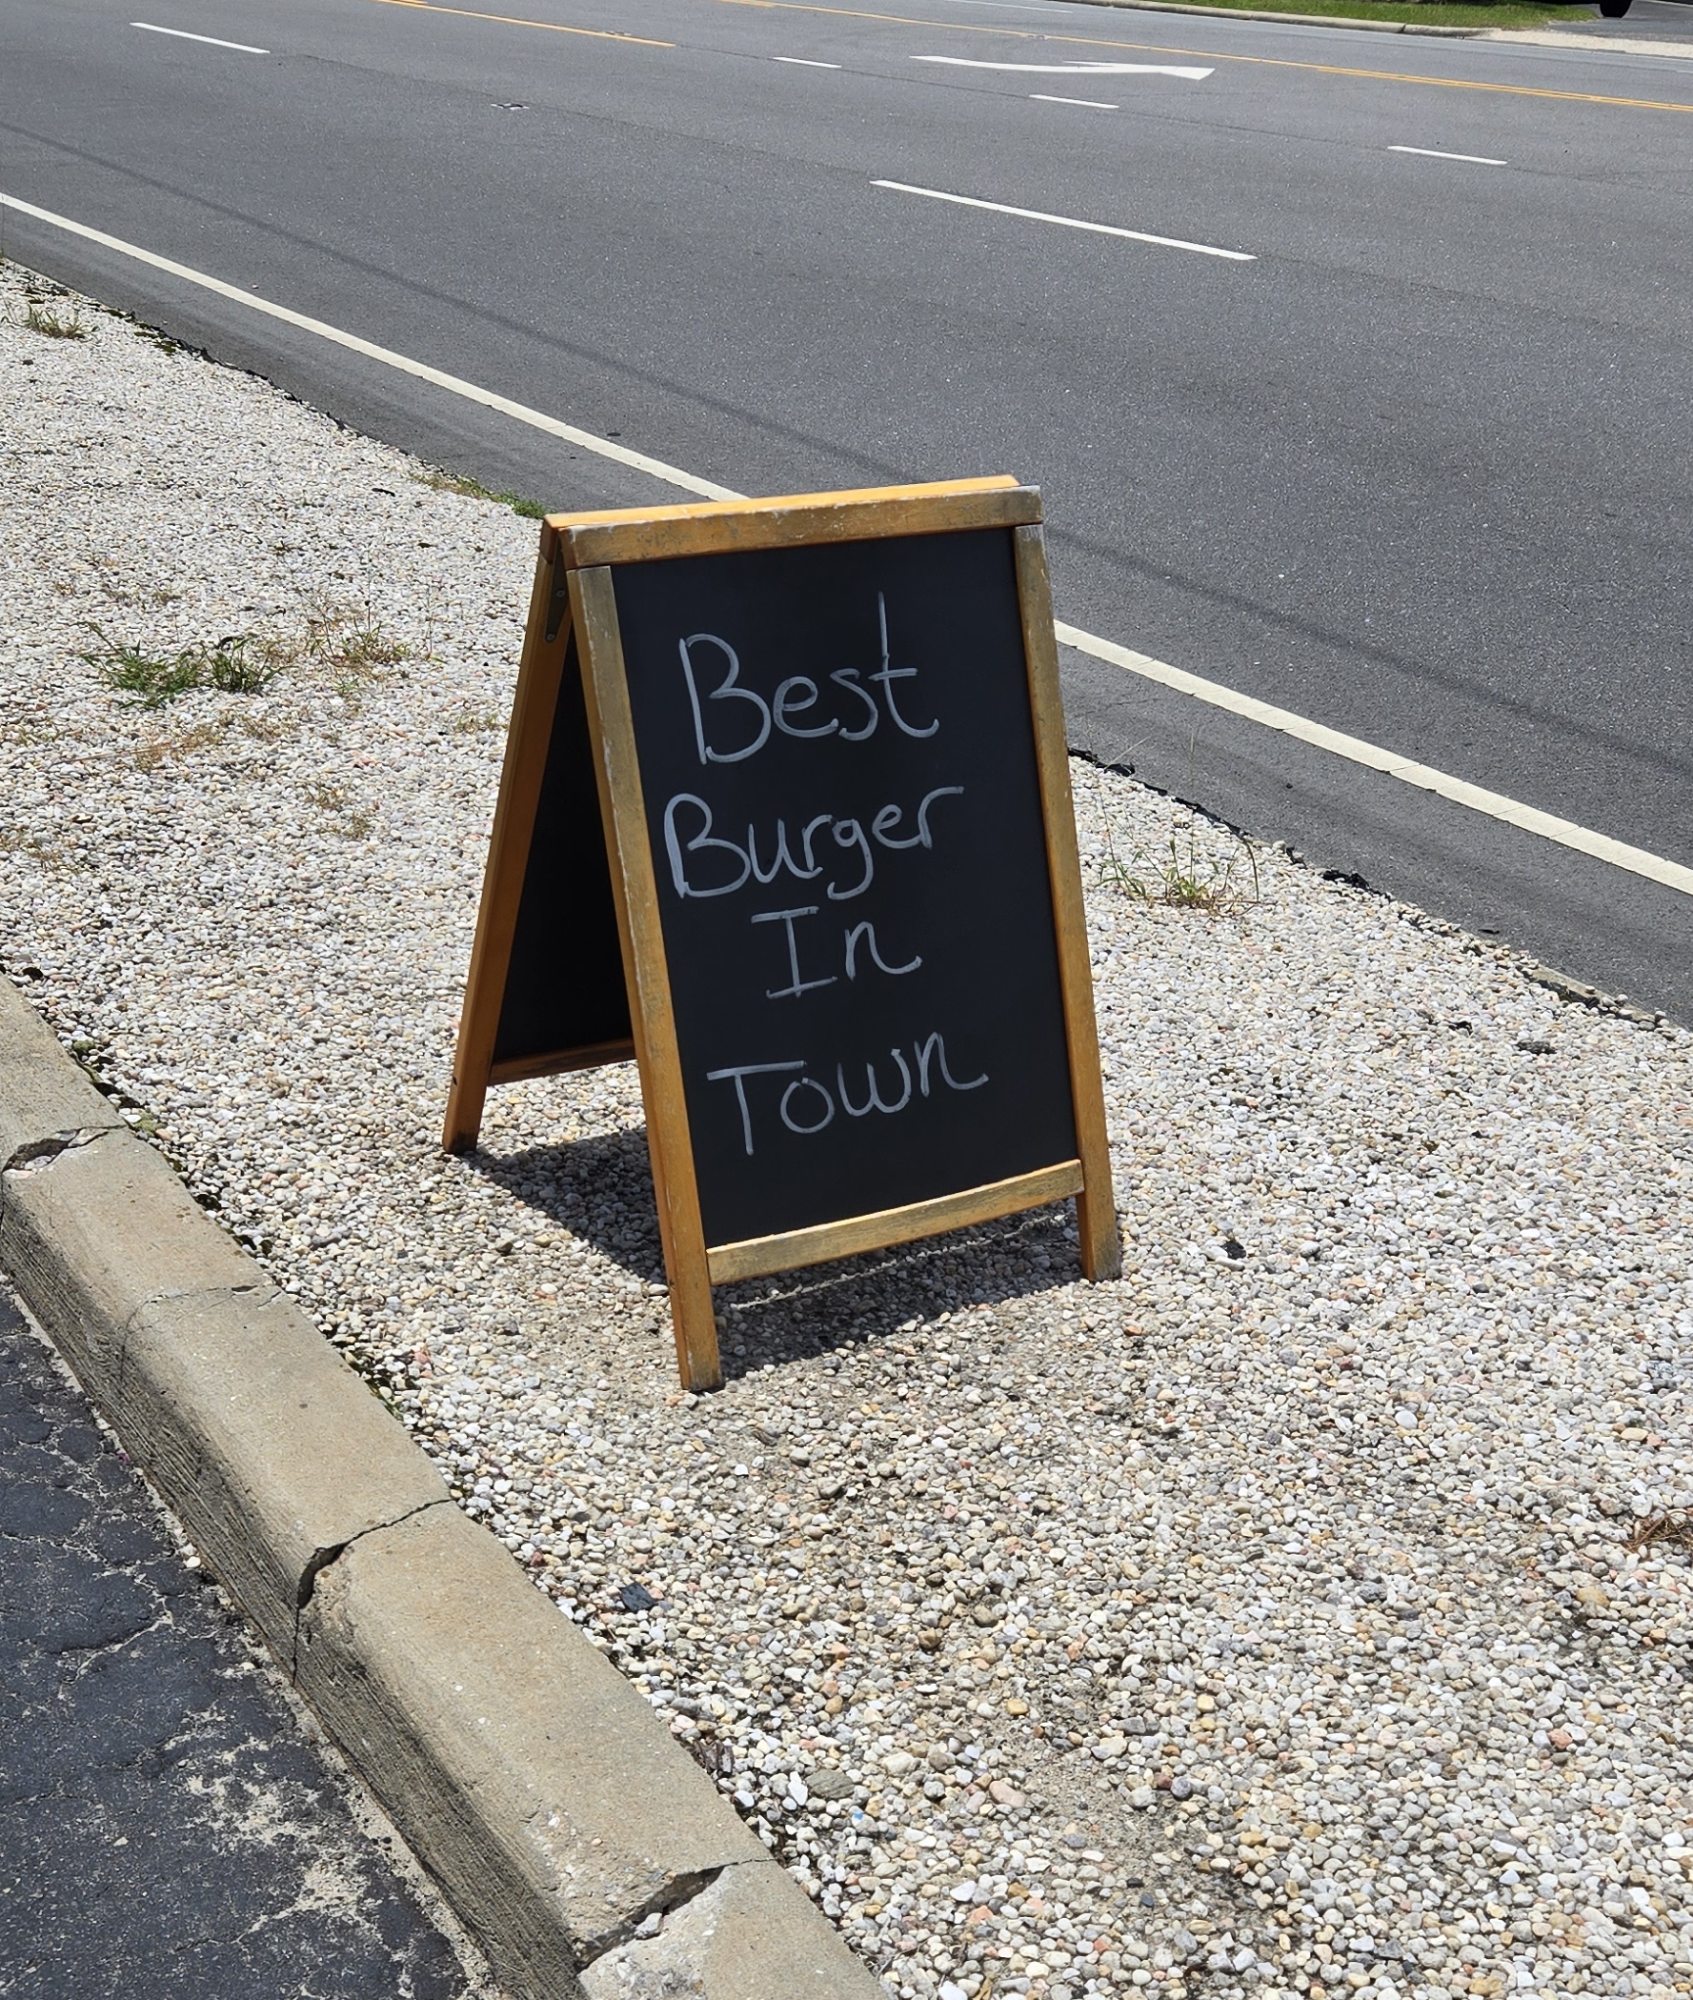 Best
Burger
In
Town